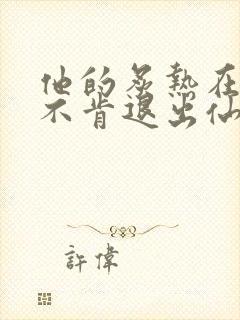 他的炙热在
不肯退出仙
許偉